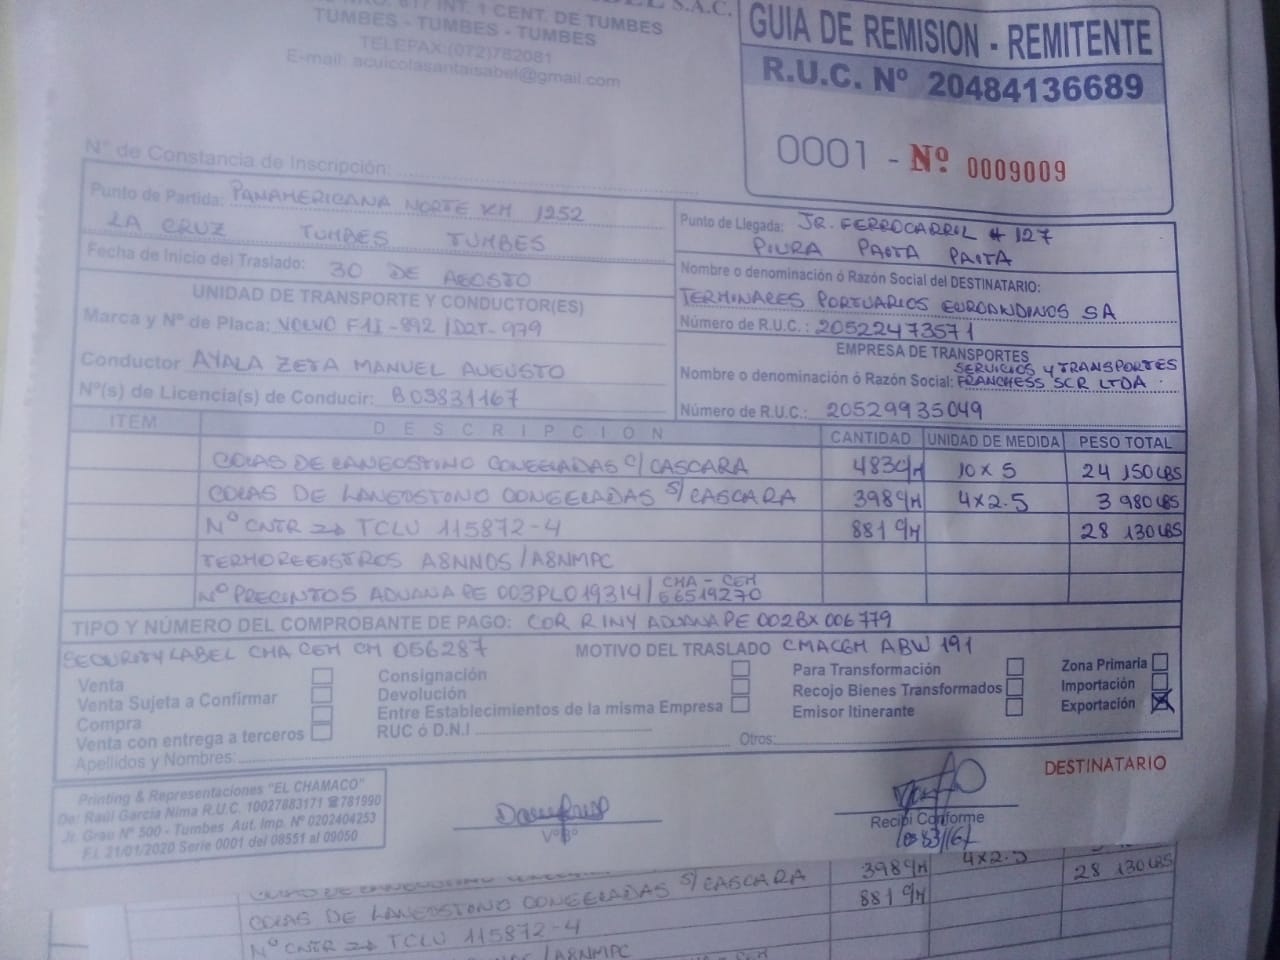 S.A.C.
INT. 1 CENT. DE TUMBES
TUMBES - TUMBES - TUMBES
TELEFAX:(072)782081
E-mail: acuicolasantaisabel@gmail.com
GUIA DE REMISION - REMITENTE
R.U.C. Nº 20484136689
0001 - Nº 0009009
Nº de Constancia de Inscripción:
Punto de Partida: PANAMERICANA NORTE KM 1252
LA CRUZ TUMBES TUMBES
Fecha de Inicio del Traslado: 30 DE AGOSTO
Punto de Llegada: JR. FERROCARRIL # 127
PIURA PAITA PAITA
Nombre o denominación ó Razón Social del DESTINATARIO:
TERMINALES PORTUARIOS EUROANDINOS SA
Número de R.U.C.: 20522473571
UNIDAD DE TRANSPORTE Y CONDUCTOR(ES)
Marca y Nº de Placa: VOLVO F1I-892 / D2T-979
Conductor AYALA ZETA MANUEL AUGUSTO
Nº(s) de Licencia(s) de Conducir: B03831167
EMPRESA DE TRANSPORTES
SERVICIOS Y TRANSPORTES
Nombre o denominación ó Razón Social: FRANCHESS SCR LTDA
Número de R.U.C.: 20529935049
ITEM DESCRIPCION CANTIDAD UNIDAD DE MEDIDA PESO TOTAL
COLAS DE LANGOSTINO CONGELADAS C/CASCARA 483 C/M 10 x 5 24 150 LBS
COLAS DE LANGOSTINO CONGELADAS S/CASCARA 398 C/M 4x2.5 3 980 LBS
Nº CNTR → TCLU 115872-4 881 C/M 28 130 LBS
TERMOREGISTROS A8NN0S / A8NMPC
Nº PRECINTOS ADUANA PE 003PL019314 / CMA - CGM
E6519270
TIPO Y NÚMERO DEL COMPROBANTE DE PAGO: COR RINY ADUANA PE 002BX 006779
SECURITY LABEL CMA CGM CM 056287 MOTIVO DEL TRASLADO CMACGM ABW 191
Venta
Venta Sujeta a Confirmar
Compra
Venta con entrega a terceros
Consignación
Devolución
Entre Establecimientos de la misma Empresa
RUC ó D.N.I
Para Transformación
Recojo Bienes Transformados
Emisor Itinerante
Zona Primaria
Importación
Exportación X
Apellidos y Nombres: Otros:
Printing & Representaciones "EL CHAMACO"
De: Raúl García Nima R.U.C. 10027883171 ☎781990
Jr. Grau Nº 500 - Tumbes Aut. Imp. Nº 0202404253
F.I. 21/01/2020 Serie 0001 del 08551 al 09050
VºBº
Recibí Conforme
DESTINATARIO
398 C/M 4x2.5 28 130 LBS
COLAS DE LANGOSTINO CONGELADAS S/CASCARA 881 C/M
Nº CNTR → TCLU 115872-4
/A8NMPC